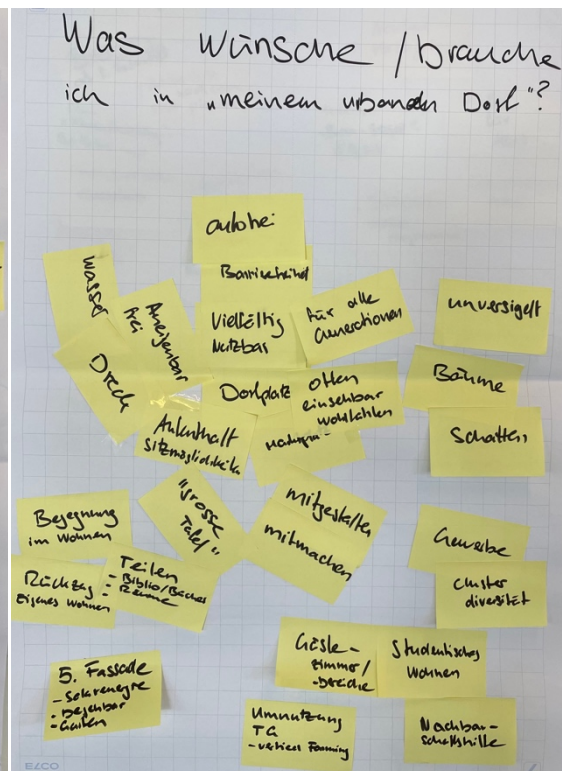 Was wünsche / brauche
ich in „meinem urbanen Dorf"?
autofrei
Barrierefreiheit
Wasser
Aneigenbar
frei
Vielfältig
Nutzbar
für alle
Generationen
unversigelt
Dreck
Dorfplatz
offen
einsehbar
wohlfühlen
Bäume
Aufenthalt
Sitzmöglichkeite
Schatten
"grosse
Tafel"
mitgestalten
mitmachen
Begegnung
im Wohnen
Gewerbe
Rückzug
eigenes Wohnen
Teilen
- Biblio/Bücher
- Räume
Cluster
diversität
5. Fassade
- Solarenergie
- Begehbar
- Garten
Gäste-
zimmer/
-bereiche
Studentisches
Wohnen
Umnutzung
TG
- vertical Farming
Nachbar-
schaftshilfe
ELCO